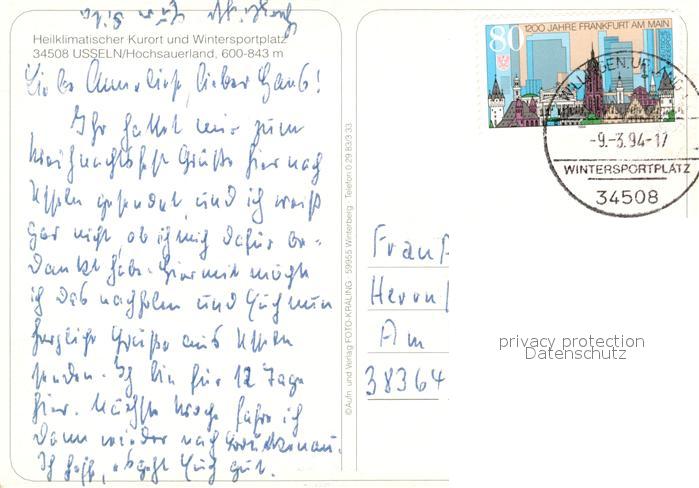 Herzlichst Eure Sita
Heilklimatischer Kurort und Wintersportplatz
34508 USSELN/Hochsauerland, 600-843 m
Liebe Anneliese, lieber Hans!
Ihr hattet mir zum
Weihnachtsfest Grüße hier nach
Usseln gesendet und ich weiß
gar nicht, ob ich mich dafür be-
dankt habe. Hiermit möcht
ich das nachholen und Euch nun
herzliche Grüße aus Usseln
senden. Ich bin für 12 Tage
hier. Nächste Woche fahre ich
dann wieder nach
Ich hoffe, es geht Euch gut.
© Aufn. und Verlag FOTO-KRALING 59955 Winterberg Telefon 0 29 83/3 33
80
1200 JAHRE FRANKFURT AM MAIN
WILLINGEN, UPLAND
-9.-3.94-17
WINTERSPORTPLATZ
34508
Herrn
Am
38364
privacy protection
Datenschutz